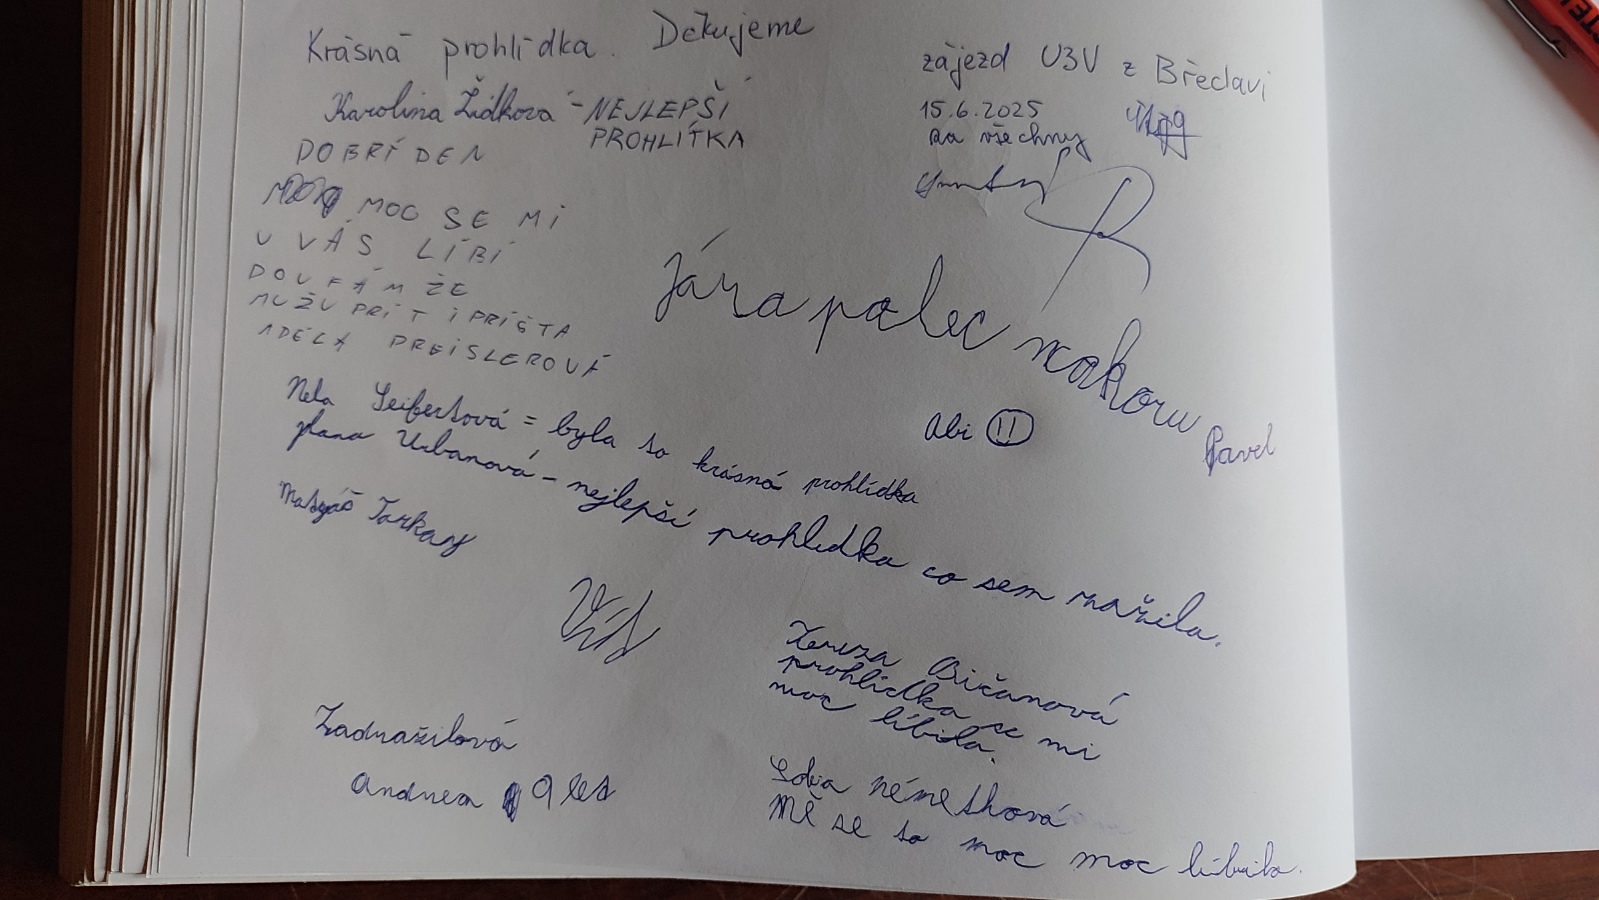 Krásná prohlídka. Děkujeme
Karolina Židková - NEJLEPŠÍ
PROHLÍTKA
DOBRÍ DEN
MOC SE MI
U VÁS LÍBÍ
DOUFÁM ŽE
MUŽU PRÍT I PRÍŠTA
ADÉLA PREISLEROVÁ
zájezd U3V z Břeclavi
15.6.2025
za všechny
Jára palec nahoru
Pavel
Abi
Nela Seifertová = byla to krásná prohlídka
Urbanová - nejlepší prohlídka co sem zažila.
Matyáš Tarkany
Vít
Zadražilová
Andrea 9 let
Tereza Bričanová
prohlídka se mi
moc líbila.
némethová
Mě se to moc moc líbila.